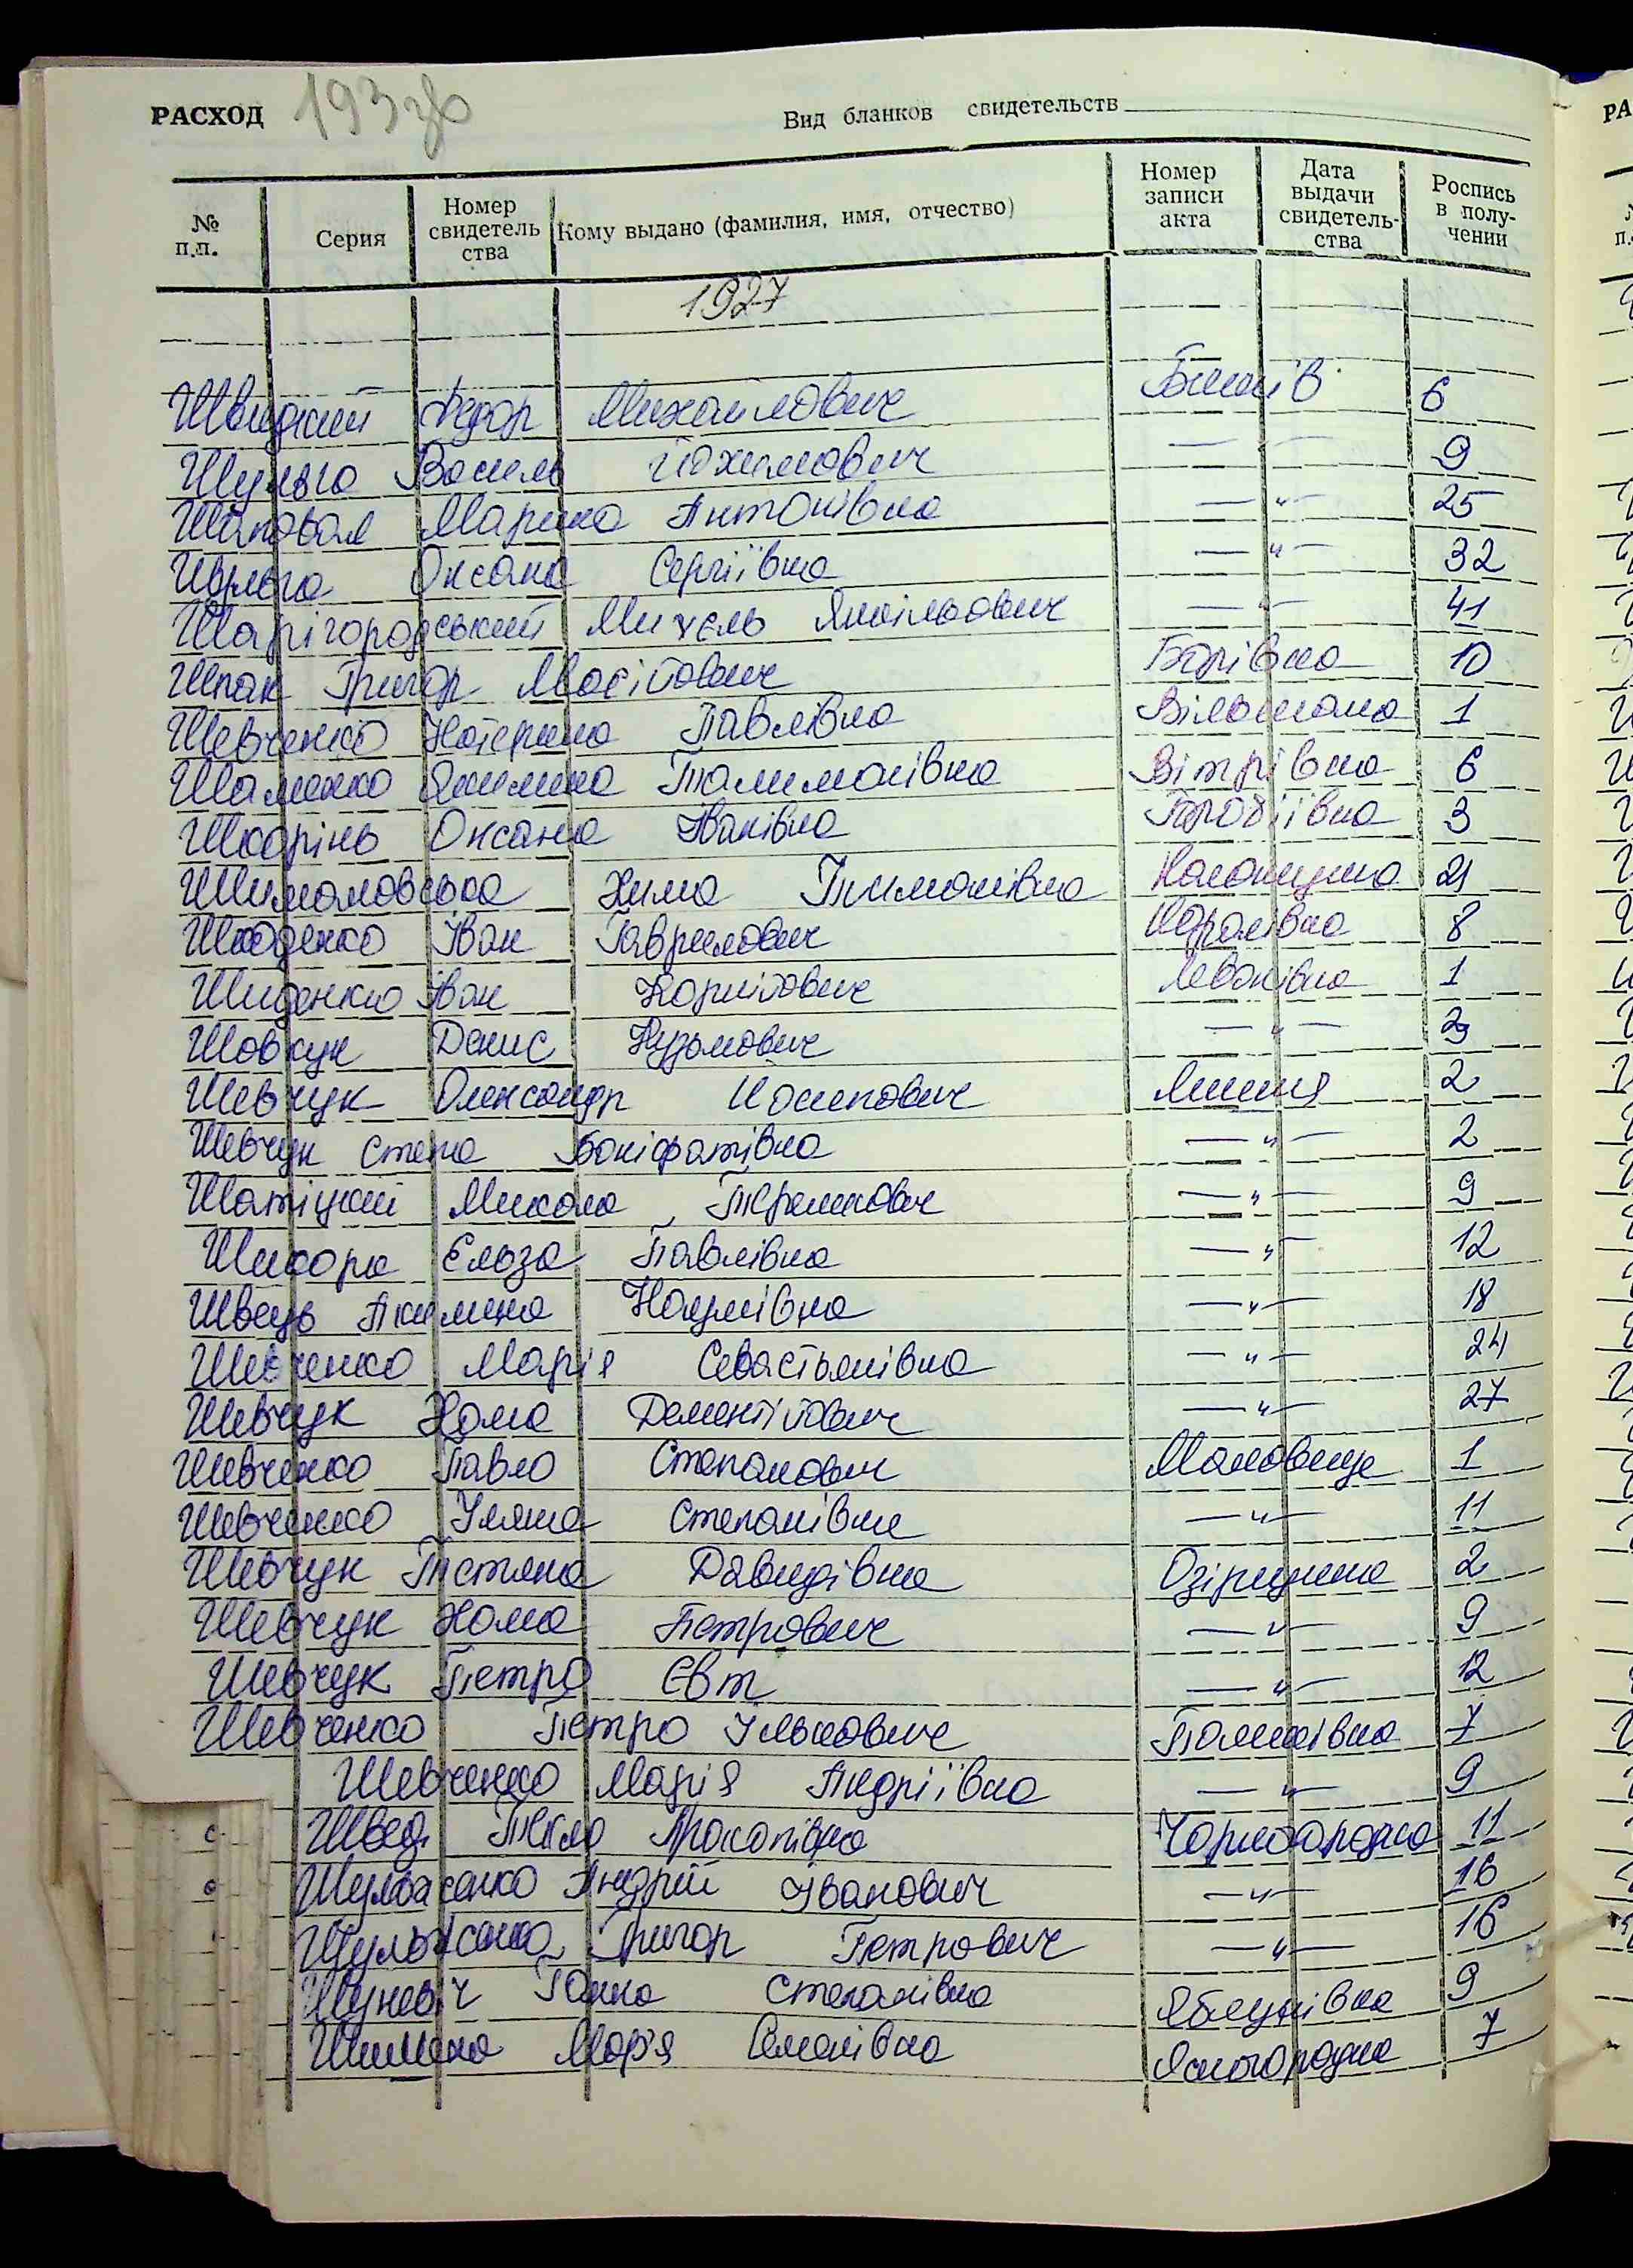 РАСХОД 193зв Вид бланков свидетельств
№ п.п. Серия Номер свидетельства Кому выдано (фамилия, имя, отчество) Номер записи акта Дата выдачи свидетельства Роспись в получении
1927
Швидкий Федор Михайлович Бишів 6
Шульга Василь Йохимович — " — 9
Шаповал Марина Антонівна — " — 25
Шульга Оксана Сергіївна — " — 32
Шаргігородський 41
Шпак Григор Мосійович Борівка 10
Шевченко Катерина Павлівна Вільшана 1
Шаменко Палимонівна Вітрівка 6
Оксана Іванівна 3
Шимановська Хима Тимонівна Колонщина 21
Шкоденко Іван Гаврилович Королівка 8
Шиденко Іван Корнійович Леонівка 1
Шовкун Денис Кузьмович — " — 3
Шевчук Олександр Йосипович Липня 2
Шевчук Степа Боніфатівна — " — 2
Шатіцкий Микола — " — 9
Ельза Павлівна — " — 12
Швець Акилина Наумівна — " — 18
Шевченко Марія Севастьянівна — " — 24
Шевчук Хома Дементійович — " — 27
Шевченко Павло Степанович Маковище 1
Шевченко Уляна Степанівна — " — 11
Шевчук Тетяна Давидівна Озірщина 2
Шевчук Хома Петрович — " — 9
Шевчук Петро Євт — " — 12
Шевченко Петро Улькович 7
Шевченко Марія Андріївна — " — 9
Швед Текла Прокопівна Чорногородка 11
Шульженко Андрій Іванович — " — 16
Григор Петрович — " — 16
Шуневич Ганна Степанівна Яблунівка 9
Мар'я Семенівна Ясногородка 7